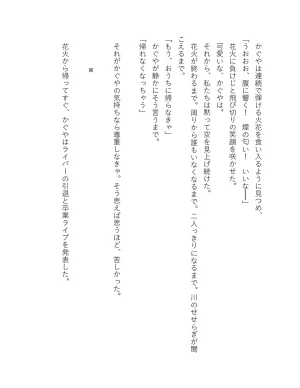 かぐやは連続で弾ける火花を食い入るように見つめ、
「うおおお、腹に響く！　煙の匂い！　いいな━━」
花火に負けじと飛び切りの笑顔を咲かせた。
可愛いな、かぐやは。
それから、私たちは黙って空を見上げ続けた。
花火が終わるまで。周りから誰もいなくなるまで。二人っきりになるまで。川のせせらぎが聞
こえるまで。
「もう、おうちに帰らなきゃ」
かぐやが静かにそう言うまで。
「帰れなくなっちゃう」
それがかぐやの気持ちなら尊重しなきゃ。そう思えば思うほど、苦しかった。
＊
花火から帰ってすぐ、かぐやはライバーの引退と卒業ライブを発表した。